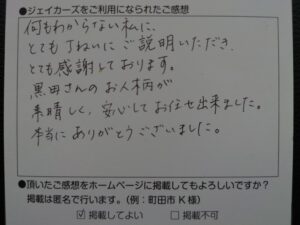 ●ジェイカーズをご利用になられたご感想
何もわからない私に、
とても丁ねいにご説明いただき、
とても感謝しております。
黒田さんのお人柄が
素晴しく、安心してお任せ出来ました。
本当にありがとうございました。
●頂いたご感想をホームページに掲載してもよろしいですか？
掲載は匿名で行います。（例：町田市 K 様）
☑ 掲載してよい　□ 掲載不可